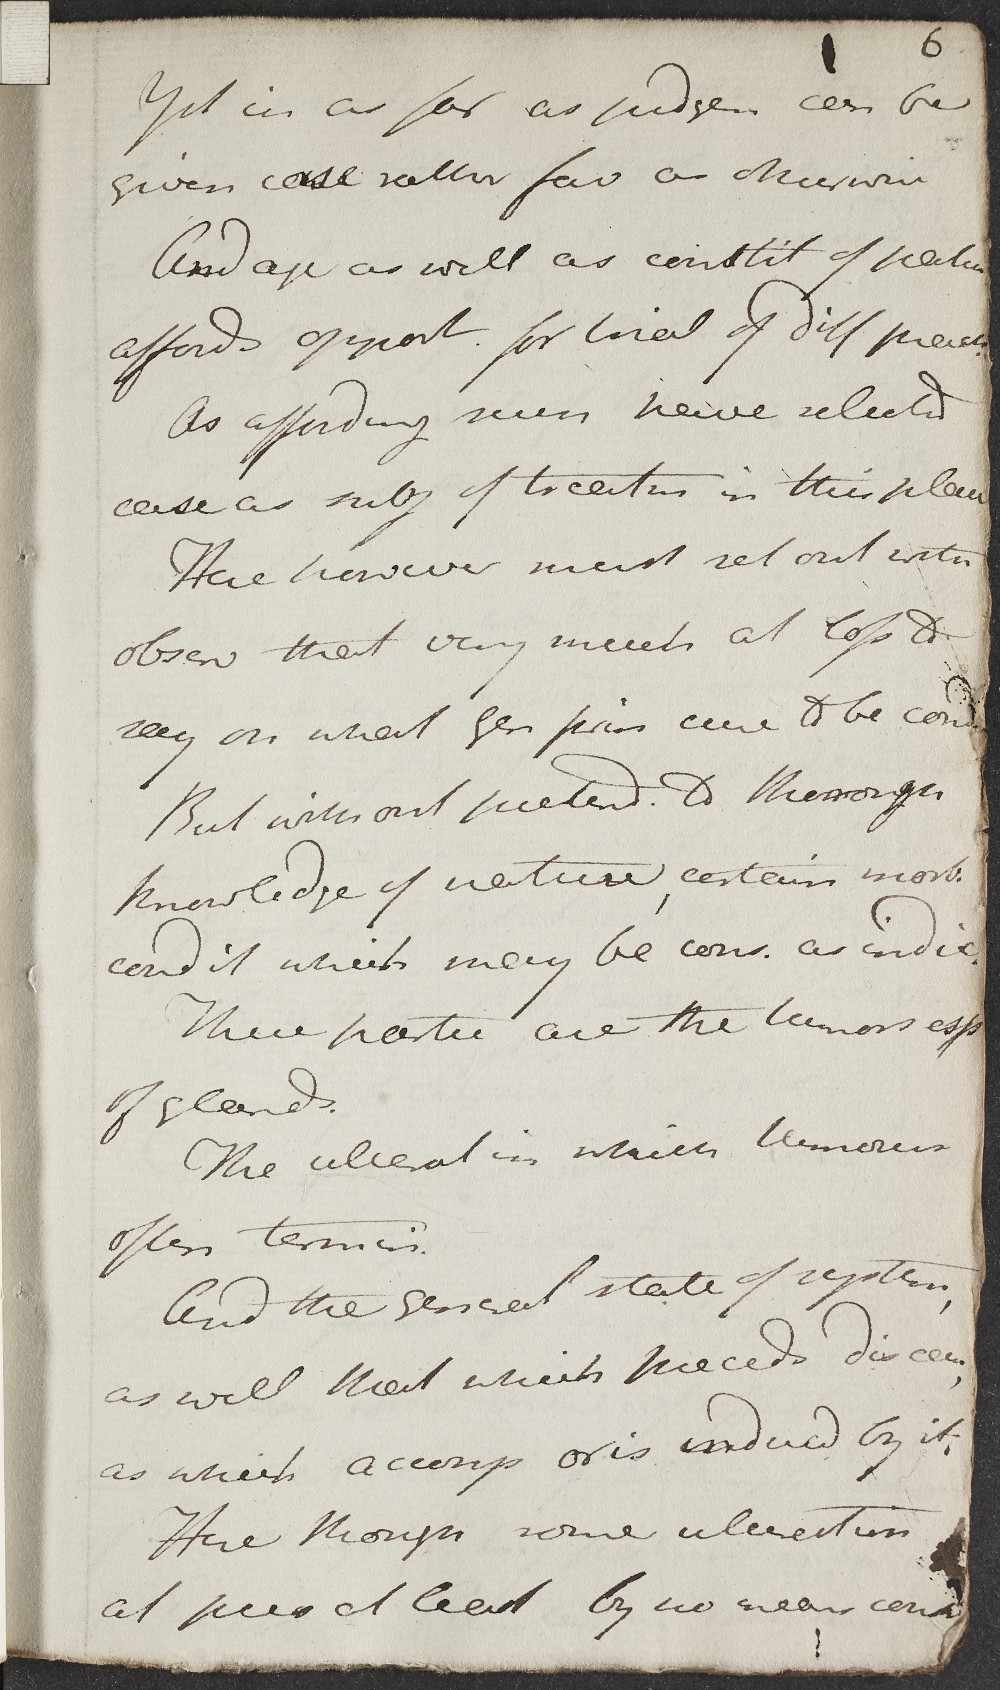 6
Yet in as far as judgem can be
given case rather fav as otherwise
And age as well as constit of patien
affords opport. for trial of diff pract.
As affording such have selected
case as subj of treatm in this place
Here however must set out with
observ that very much at loss to
say on what gen prin cure to be cond
But without pretend. to thorrough
knowledge of nature, certain morb.
condit which may be cons. as indic.
These partic are the tumors esp
of glands.
The ulcerat in which tumours
often termin.
And the general state of system,
as well that which preceds disease,
as which accomp or is induced by it.
Here though some ulceration
at pres at least by no means cons